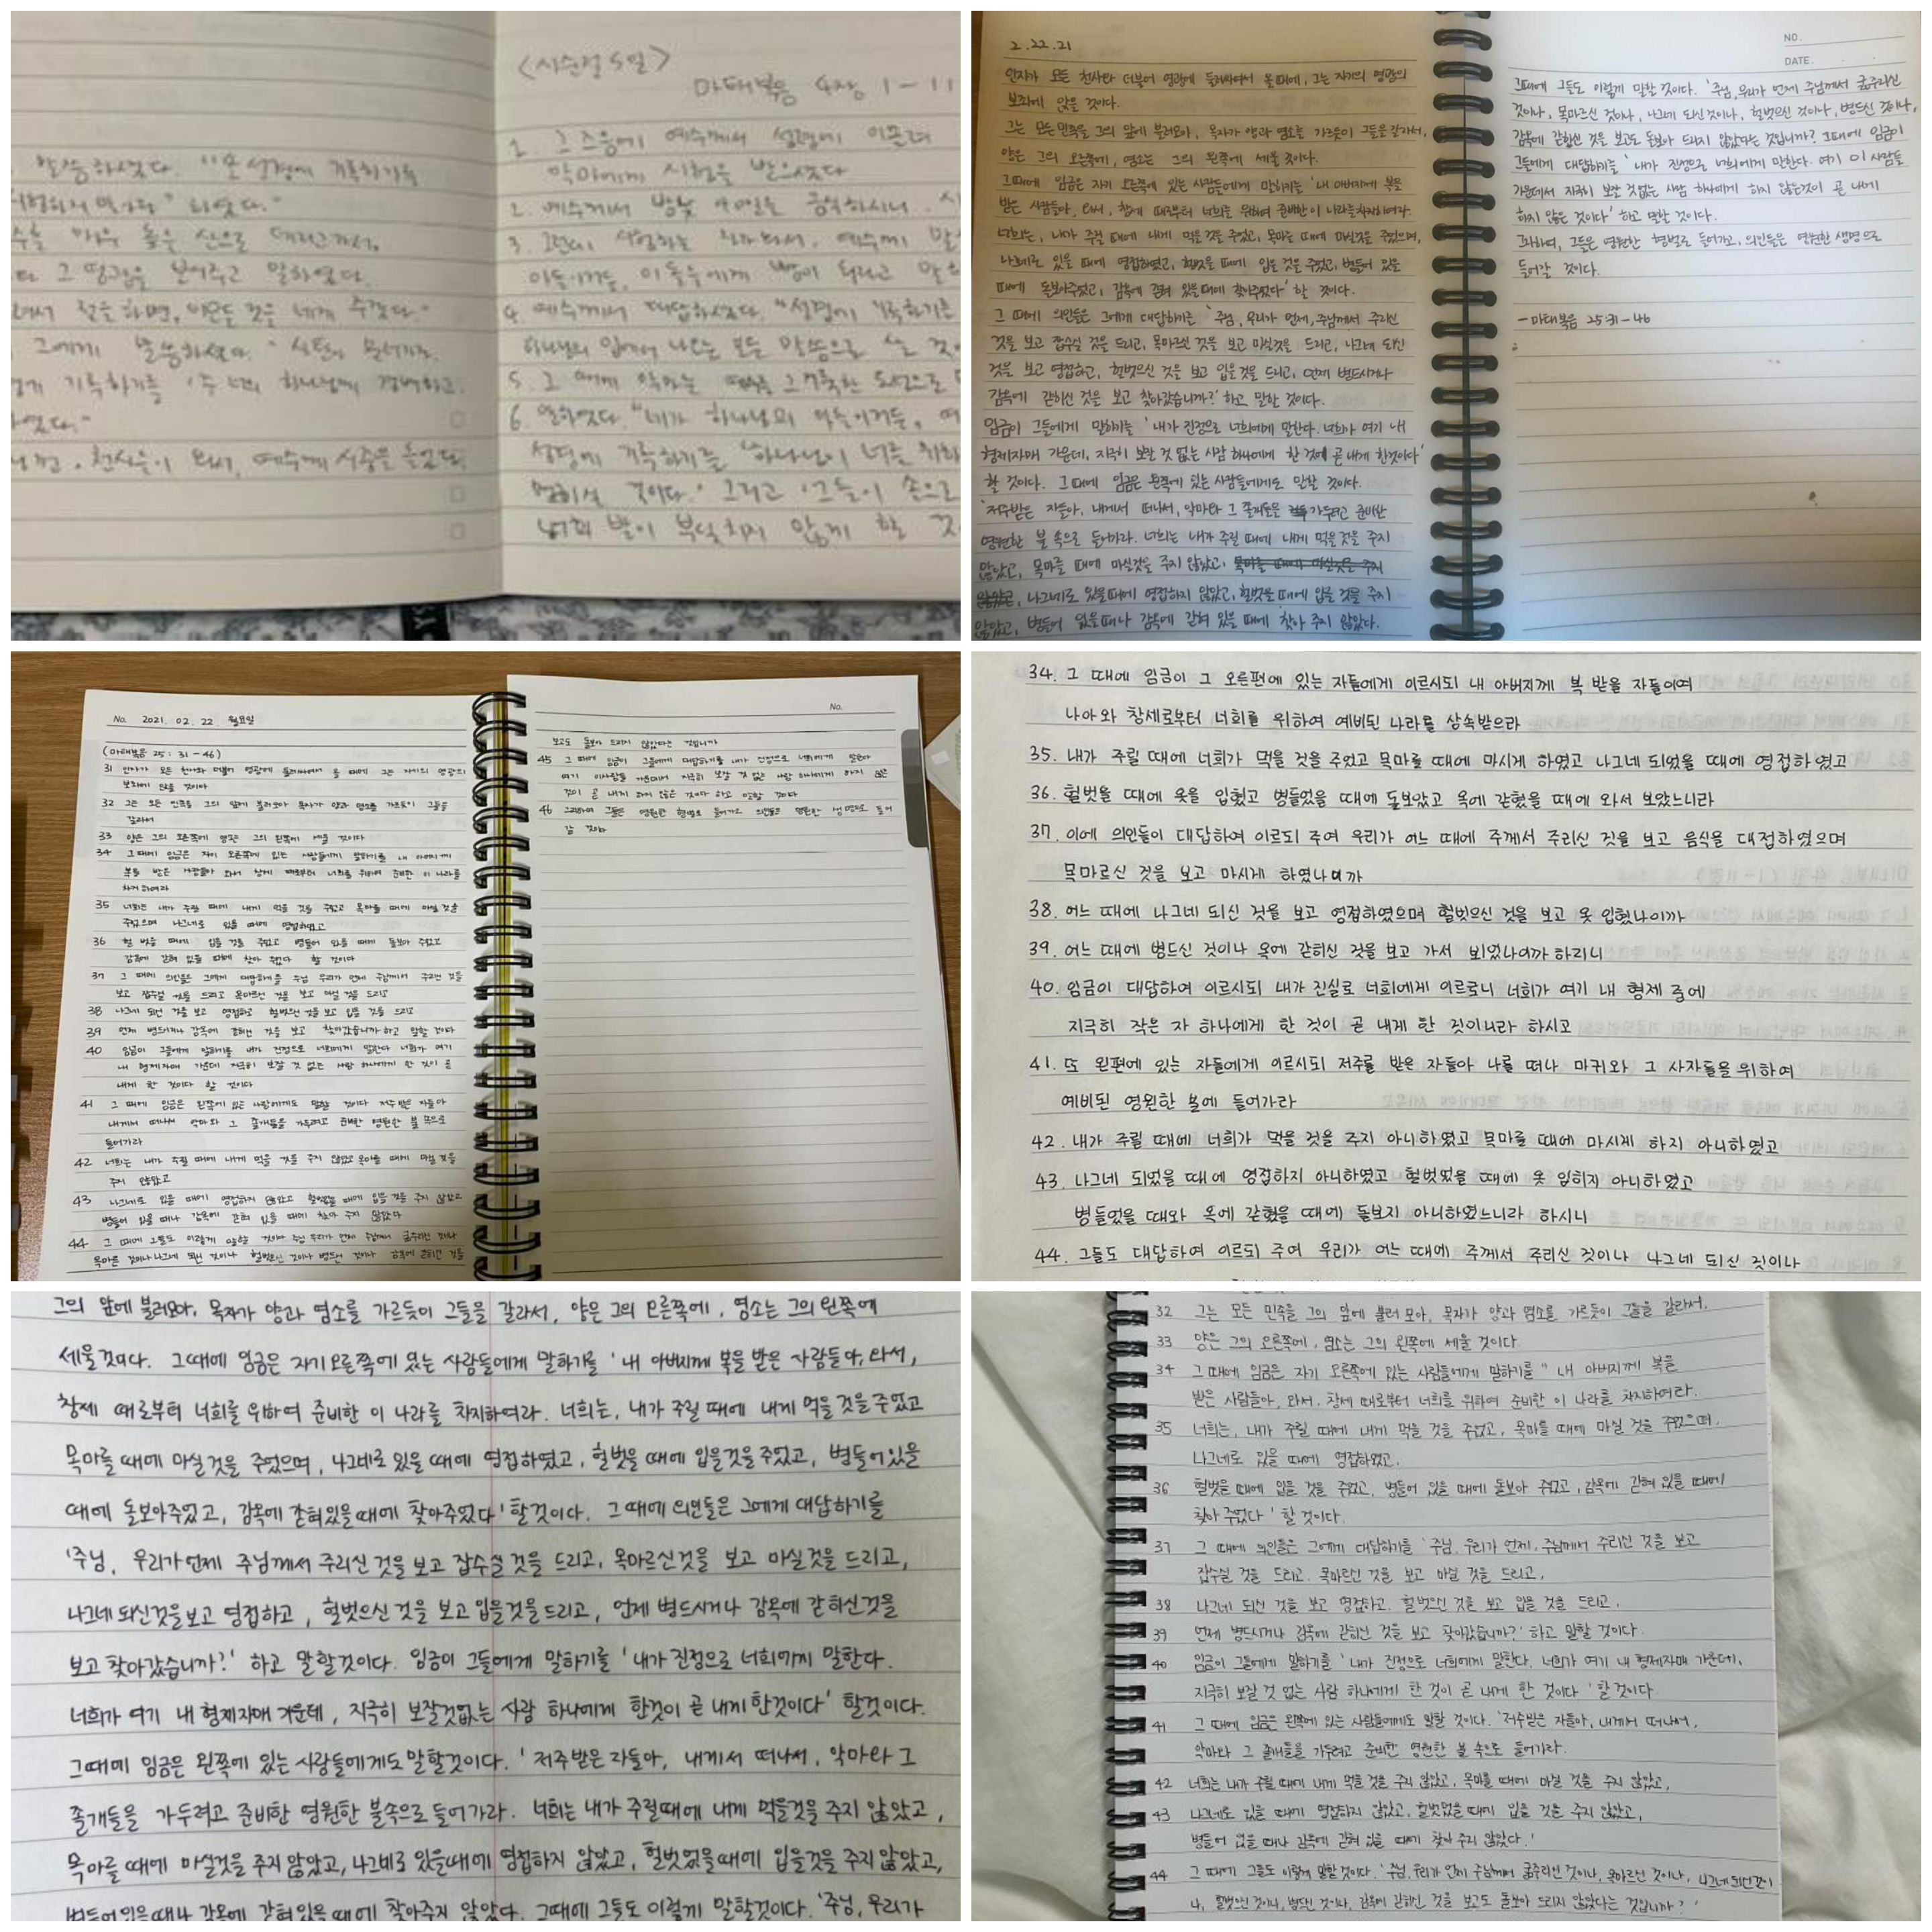 말씀하셨다. "또 성경에 기록하기를
시험하지 말아라" 하였다."
매우 높은 산으로 데리고가서,
그 영광을 보여주고 말하였다.
절을 하면, 이모든 것을 네게 주겠다."
그에게 말씀하셨다.
기록하기를 '주 너의 하나님께 경배하고,
하였다."
천사들이 와서, 예수께 시중을 들었다.
<사순절 5일>
마태복음 4장 1-11
1. 그 즈음에 예수께서 성령에 이끌려
악마에게 시험을 받으셨다
2. 예수께서 밤낮 금식하시니,
3. 예수께
이 돌들에게 빵이 되라고
4. 예수께서 대답하셨다. "성경에 기록하기를
하나님의 입에서 나오는 모든 말씀으로 살 것
5. 그 때에 악마는 그 거룩한 도성으로
6. 말하였다 "네가 하나님의 아들이거든,
성경에 기록하기를 '하나님이 너를 위하
명하실 것이다.' 그리고 '그들이 손으로
너희 발이 부딪치지 않게 할 것
2.22.21
인자가 모든 천사와 더불어 영광에 둘러싸여서 올때에, 그는 자기의 영광의
보좌에 앉을 것이다.
그는 모든민족을 그의 앞에 불러모아, 목자가 양과 염소를 가르듯이 그들을갈라서,
양은 그의 오른쪽에, 염소는 그의 왼쪽에 세울 것이다.
그때에 임금은 자기 오른쪽에 있는 사람들에게 말하기를 '내 아버지께 복을
받은 사람들아, 와서, 창세 때로부터 너희를 위하여 준비한이 나라를차지하여라.
너희는, 내가 주릴 때에 내게 먹을 것을 주었고, 목마를 때에 마실것을 주었으며,
나그네로 있을 때에 영접하였고, 헐벗을 때에 입을 것을 주었고, 병들어 있을
때에 돌보아주었고, 감옥에 갇혀 있을때에 찾아주었다' 할 것이다.
그 때에 의인들은 그에게 대답하기를 '주님, 우리가 언제, 주님께서 주리신
것을 보고 잡수실 것을 드리고, 목마르신 것을 보고 마실것을 드리고, 나그네 되신
것을 보고 영접하고, 헐벗으신 것을 보고 입을것을 드리고, 언제 병드시거나
감옥에 갇히신 것을 보고 찾아갔습니까?' 하고 말할 것이다.
임금이 그들에게 말하기를 '내가 진정으로 너희에게 말한다. 너희가 여기 내
형제자매 가운데, 지극히 보잘 것 없는 사람 하나에게 한 것이 곧 내게 한것이다'
할 것이다. 그 때에 임금은 왼쪽에 있는 사람들에게도 말할 것이다.
'저주받은 자들아, 내게서 떠나서, 악마와 그 졸개들을 가두려고 준비한
영원한 불 속으로 들어가라. 너희는 내가 주릴 때에 내게 먹을것을 주지
않았고, 목마를 때에 마실것을 주지 않았고, 목마를 때에 마실것을 주지
않았고, 나그네로 있을때에 영접하지 않았고, 헐벗을 때에 입을 것을 주지
않았고, 병들어 있을때나 감옥에 갇혀 있을 때에 찾아 주지 않았다.
NO.
DATE.
그때에 그들도 이렇게 말할 것이다. '주님, 우리가 언제 주님께서 굶주리신
것이나, 목마르신 것이나, 나그네 되신 것이나, 헐벗으신 것이나, 병드신 것이나,
감옥에 갇히신 것을 보고도 돌보아 드리지 않았다는 것입니까? 그때에 임금이
그들에게 대답하기를 '내가 진정으로 너희에게 말한다. 여기 이 사람들
가운데서 지극히 보잘 것없는 사람 하나에게 하지 않은것이 곧 내게
하지 않은 것이다' 하고 말할 것이다.
그리하여, 그들은 영원한 형벌로 들어가고, 의인들은 영원한 생명으로
들어갈 것이다.
- 마태복음 25:31-46
No. 2021. 02. 22 월요일
(마태복음 25:31-46)
31 인자가 모든 천사와 더불어 영광에 둘러싸여서 올 때에 그는 자기의 영광의
보좌에 앉을 것이다
32 그는 모든 민족을 그의 앞에 불러모아 목자가 양과 염소를 가르듯이 그들을
갈라서
33 양은 그의 오른쪽에 염소는 그의 왼쪽에 세울 것이다
34 그때에 임금은 자기 오른쪽에 있는 사람들에게 말하기를 내 아버지께
복을 받은 사람들아 와서 창세 때로부터 너희를 위하여 준비한 이 나라를
차지하여라
35 너희는 내가 주릴 때에 내게 먹을 것을 주었고 목마를 때에 마실 것을
주었으며 나그네로 있을 때에 영접하였고
36 헐 벗을 때에 입을 것을 주었고 병들어 있을 때에 돌보아 주었고
감옥에 갇혀 있을 때에 찾아 주었다 할 것이다
37 그 때에 의인들은 그에게 대답하기를 주님 우리가 언제 주님께서 주리신 것을
보고 잡수실 것을 드리고 목마르신 것을 보고 마실 것을 드리고
38 나그네 되신 것을 보고 영접하고 헐벗으신 것을 보고 입을 것을 드리고
39 언제 병드시거나 감옥에 갇히신 것을 보고 찾아갔습니까 하고 말할 것이다
40 임금이 그들에게 말하기를 내가 진정으로 너희에게 말한다 너희가 여기
내 형제자매 가운데 지극히 보잘 것 없는 사람 하나에게 한 것이 곧
내게 한 것이다 할 것이다
41 그 때에 임금은 왼쪽에 있는 사람들에게도 말할 것이다 저주받은 자들아
내게서 떠나서 악마와 그 졸개들을 가두려고 준비한 영원한 불 속으로
들어가라
42 너희는 내가 주릴 때에 내게 먹을 것을 주지 않았고 목마를 때에 마실 것을
주지 않았고
43 나그네로 있을 때에 영접하지 않았고 헐벗었을 때에 입을 것을 주지 않았고
병들어 있을 때나 감옥에 갇혀 있을 때에 찾아 주지 않았다
44 그 때에 그들도 이렇게 말할 것이다 주님 우리가 언제 주님께서 굶주리신 것이나
목마른 것이나 나그네 되신 것이나 헐벗으신 것이나 병드신 것이나 감옥에 갇히신 것을
No.
보고도 돌보아 드리지 않았다는 것입니까
45 그 때에 임금이 그들에게 대답하기를 내가 진정으로 너희에게 말한다
여기 이사람들 가운데서 지극히 보잘 것 없는 사람 하나에게 하지 않은
것이 곧 내게 하지 않은 것이다 하고 말할 것이다
46 그리하여 그들은 영원한 형벌로 들어가고 의인들은 영원한 생명으로 들어
갈 것이다
34. 그 때에 임금이 그 오른편에 있는 자들에게 이르시되 내 아버지께 복 받을 자들이여
나아와 창세로부터 너희를 위하여 예비된 나라를 상속받으라
35. 내가 주릴 때에 너희가 먹을 것을 주었고 목마를 때에 마시게 하였고 나그네 되었을 때에 영접하였고
36. 헐벗을 때에 옷을 입혔고 병들었을 때에 돌보았고 옥에 갇혔을 때에 와서 보았느니라
37. 이에 의인들이 대답하여 이르되 주여 우리가 어느 때에 주께서 주리신 것을 보고 음식을 대접하였으며
목마르신 것을 보고 마시게 하였나이까
38. 어느 때에 나그네 되신 것을 보고 영접하였으며 헐벗으신 것을 보고 옷 입혔나이까
39. 어느 때에 병드신 것이나 옥에 갇히신 것을 보고 가서 뵈었나이까 하리니
40. 임금이 대답하여 이르시되 내가 진실로 너희에게 이르로니 너희가 여기 내 형제 중에
지극히 작은 자 하나에게 한 것이 곧 내게 한 것이니라 하시고
41. 또 왼편에 있는 자들에게 이르시되 저주를 받은 자들아 나를 떠나 마귀와 그 사자들을 위하여
예비된 영원한 불에 들어가라
42. 내가 주릴 때에 너희가 먹을 것을 주지 아니하였고 목마를 때에 마시게 하지 아니하였고
43. 나그네 되었을 때에 영접하지 아니하였고 헐벗었을 때에 옷 입히지 아니하였고
병들었을 때와 옥에 갇혔을 때에 돌보지 아니하였느니라 하시니
44. 그들도 대답하여 이르되 주여 우리가 어느 때에 주께서 주리신 것이나 나그네 되신 것이나
그의 앞에 불러모아, 목자가 양과 염소를 가르듯이 그들을 갈라서, 양은 그의 오른쪽에, 염소는 그의 왼쪽에
세울것이다. 그때에 임금은 자기오른쪽에 있는 사람들에게 말하기를 '내 아버지께 복을 받은 사람들아, 와서,
창제 때로부터 너희를 위하여 준비한 이 나라를 차지하여라. 너희는, 내가 주릴 때에 내게 먹을것을주었고
목마를 때에 마실것을 주었으며, 나그네로 있을 때에 영접하였고, 헐벗을 때에 입을것을주었고, 병들어있을
때에 돌보아주었고, 감옥에 갇혀있을때에 찾아주었다' 할것이다. 그 때에 의인들은 그에게 대답하기를
'주님, 우리가언제 주님께서 주리신 것을 보고 잡수실 것을 드리고, 목마르신것을 보고 마실것을 드리고,
나그네 되신것을보고 영접하고, 헐벗으신 것을 보고 입을것을드리고, 언제 병드시거나 감옥에 갇히신것을
보고 찾아갔습니까?' 하고 말할것이다. 임금이 그들에게 말하기를 '내가 진정으로 너희에게 말한다.
너희가 여기 내 형제자매 가운데, 지극히 보잘것없는 사람 하나에게 한것이 곧 내게한것이다' 할것이다.
그때에 임금은 왼쪽에 있는 사람들에게도 말할것이다. '저주받은 자들아, 내게서 떠나서, 악마와 그
졸개들을 가두려고 준비한 영원한 불속으로 들어가라. 너희는 내가 주릴때에 내게 먹을것을 주지 않았고,
목아를 때에 마실것을 주지 않았고, 나그네로 있을때에 영접하지 않았고, 헐벗었을때에 입을것을 주지않았고,
병들어있을때나 감옥에 갇혀있을 때에 찾아주지 않았다. 그때에 그들도 이렇게 말할것이다. '주님, 우리가
32 그는 모든 민족을 그의 앞에 불러 모아, 목자가 양과 염소를 가르듯이 그들을 갈라서,
33 양은 그의 오른쪽에, 염소는 그의 왼쪽에 세울 것이다
34 그 때에 임금은 자기 오른쪽에 있는 사람들에게 말하기를 " 내 아버지께 복을
받은 사람들아, 와서, 창세 때로부터 너희를 위하여 준비한 이 나라를 차지하여라.
35 너희는, 내가 주릴 때에 내게 먹을 것을 주었고, 목마를 때에 마실 것을 주었으며,
나그네로 있을 때에 영접하였고,
36 헐벗을 때에 입을 것을 주었고, 병들어 있을 때에 돌보아 주었고, 감옥에 갇혀 있을 때에
찾아 주었다' 할 것이다.
37 그 때에 의인들은 그에게 대답하기를 '주님, 우리가 언제, 주님께서 주리신 것을 보고
잡수실 것을 드리고, 목마르신 것을 보고 마실 것을 드리고,
38 나그네 되신 것을 보고 영접하고, 헐벗으신 것을 보고 입을 것을 드리고,
39 언제 병드시거나 감옥에 갇히신 것을 보고 찾아갔습니까?' 하고 말할 것이다.
40 임금이 그들에게 말하기를 '내가 진정으로 너희에게 말한다. 너희가 여기 내 형제자매 가운데,
지극히 보잘 것 없는 사람 하나에게 한 것이 곧 내게 한 것이다' 할 것이다.
41 그 때에 임금은 왼쪽에 있는 사람들에게도 말할 것이다. '저주받은 자들아, 내게서 떠나서,
악마와 그 졸개들을 가두려고 준비한 영원한 불 속으로 들어가라.
42 너희는 내가 주릴 때에 내게 먹을 것을 주지 않았고, 목마를 때에 마실 것을 주지 않았고,
43 나그네로 있을 때에 영접하지 않았고, 헐벗었을 때에 입을 것을 주지 않았고,
병들어 있을 때나 감옥에 갇혀 있을 때에 찾아 주지 않았다.'
44 그 때에 그들도 이렇게 말할 것이다. '주님, 우리가 언제 주님께서 굶주리신 것이나, 목마르신 것이나, 나그네 되신것이
나, 헐벗으신 것이나, 병드신 것이나, 감옥에 갇히신 것을 보고도 돌보아 드리지 않았다는 것입니까?'